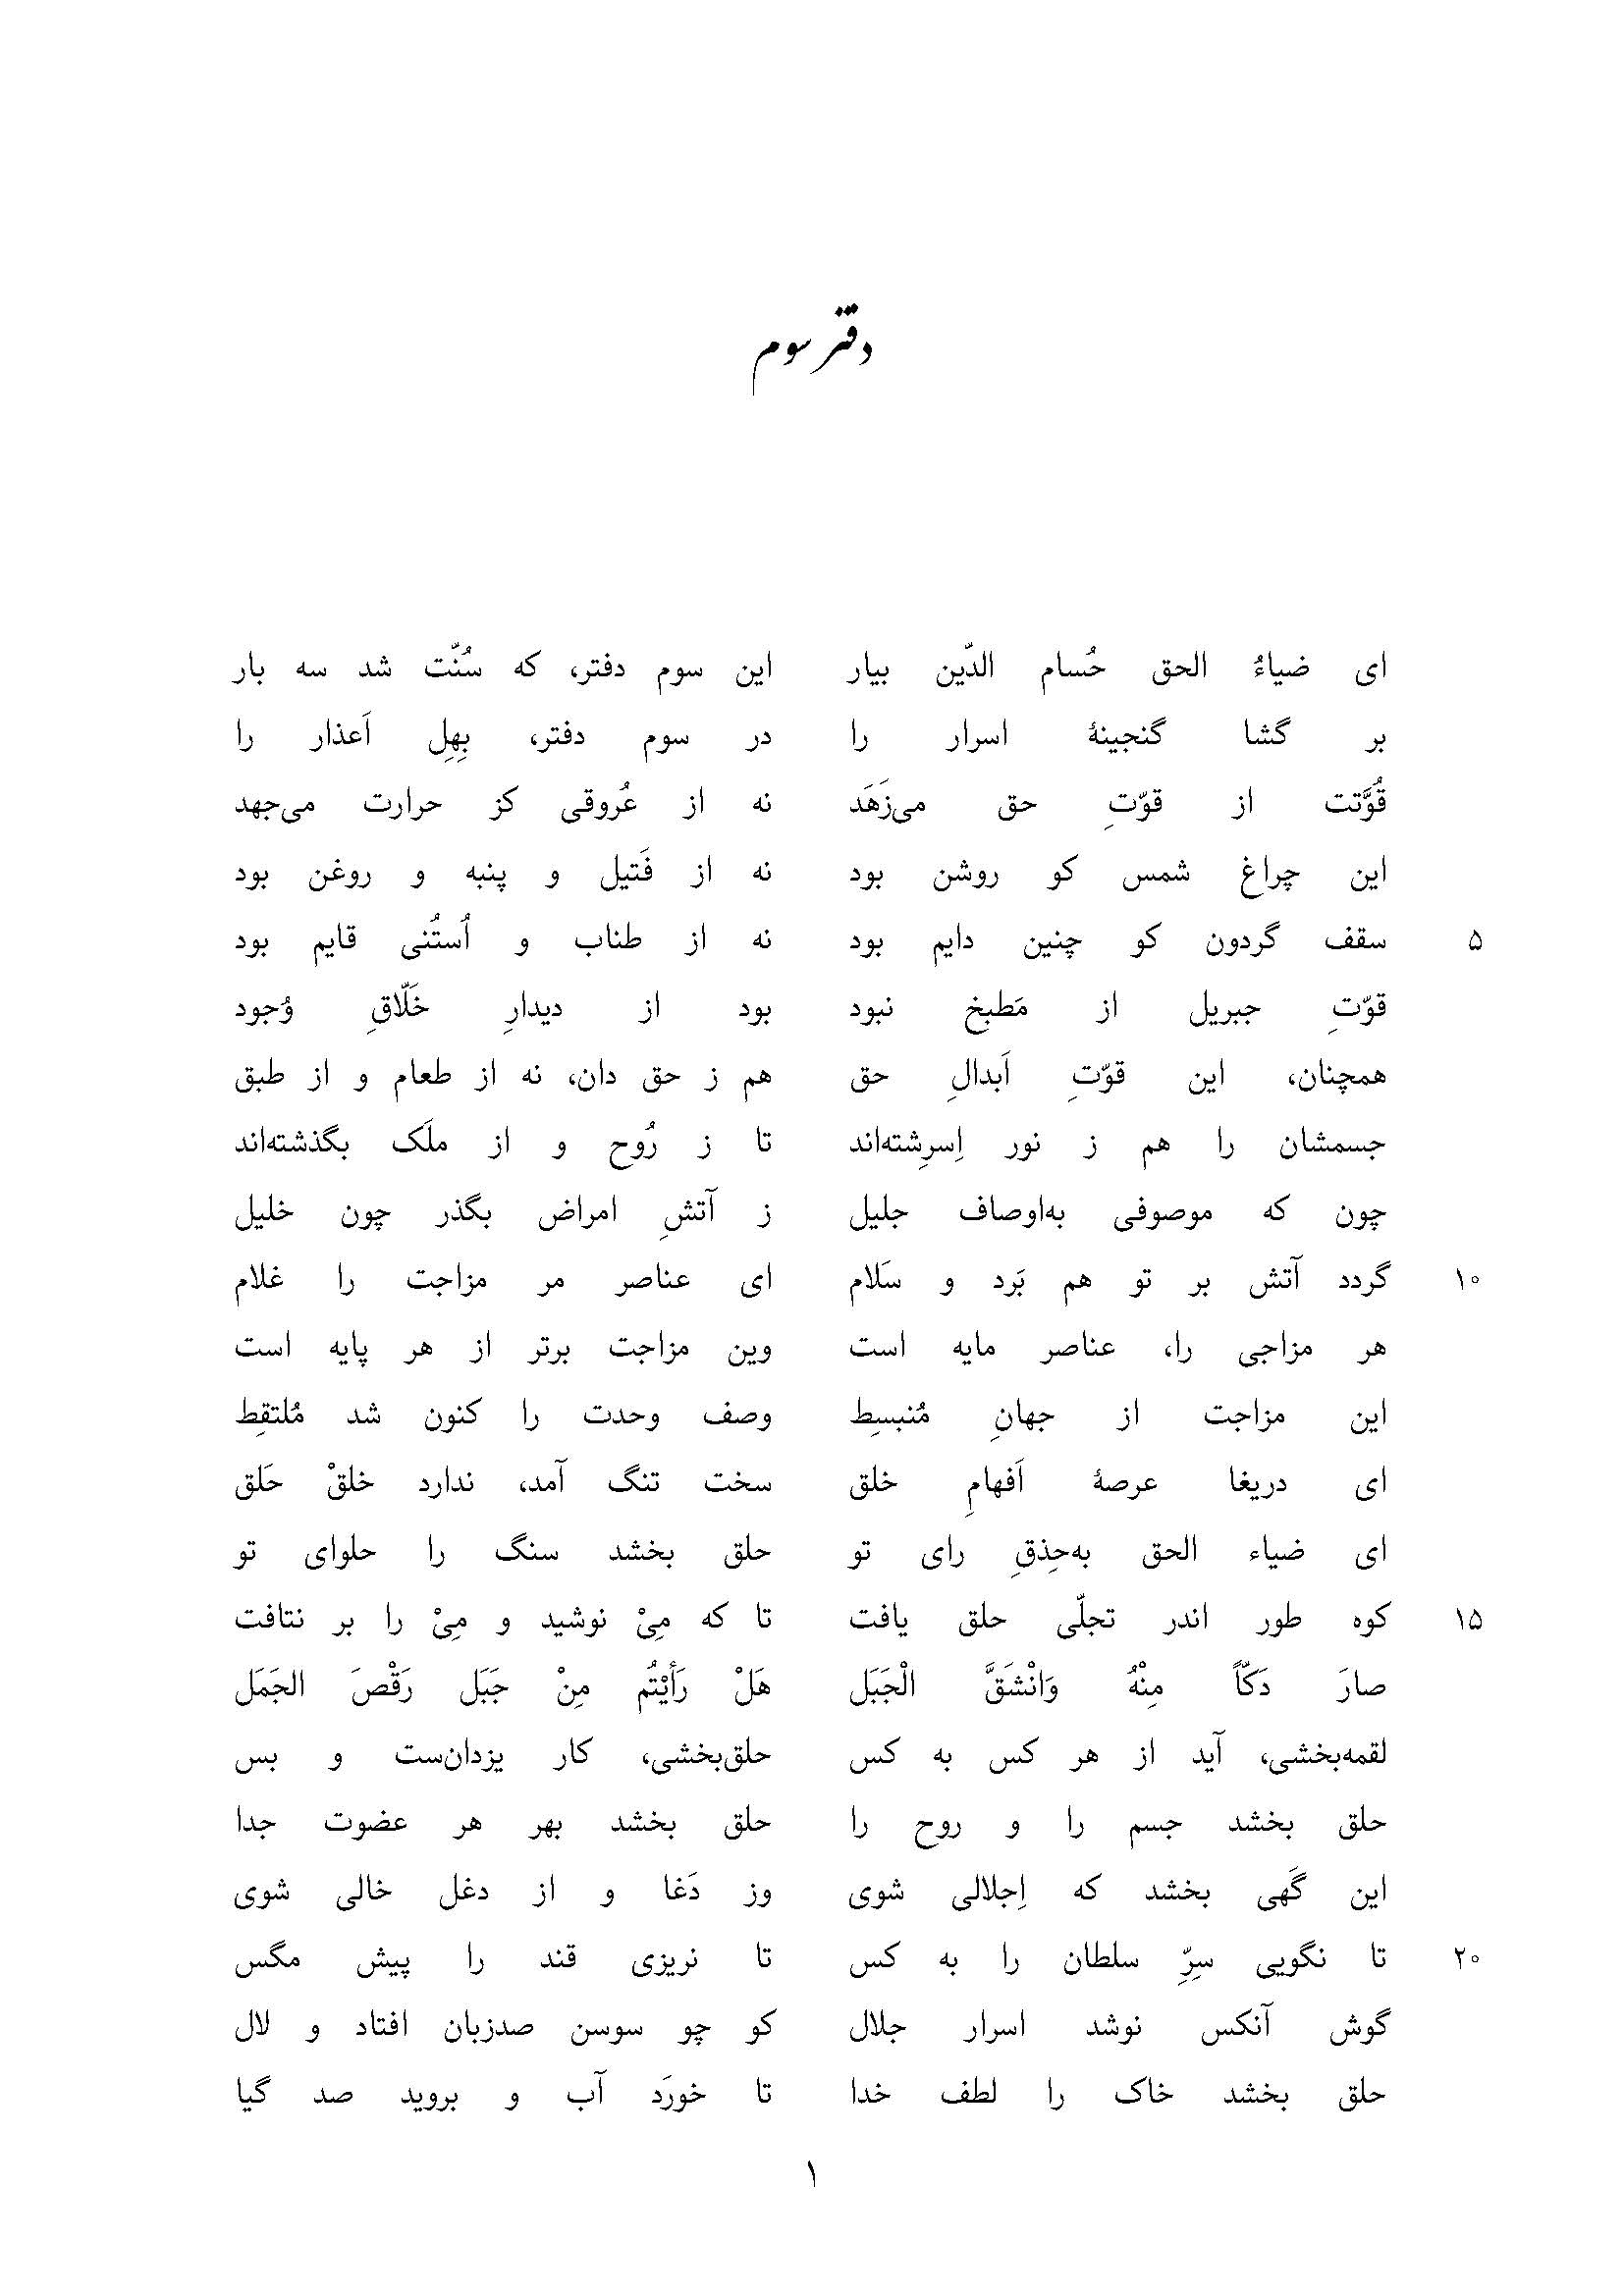 دفتر سوم
ای ضیاءُ الحق حُسام الدّین بیار این سوم دفتر، که سُنّت شد سه بار
بر گشا گنجینهٔ اسرار را در سوم دفتر، بِهِل اَعذار را
قُوَّتت از قوّتِ حق می‌زَهَد نه از عُروقی کز حرارت می‌جهد
این چراغ شمس کو روشن بود نه از فَتیل و پنبه و روغن بود
۵ سقف گردون کو چنین دایم بود نه از طناب و اُستُنی قایم بود
قوّتِ جبریل از مَطبخ نبود بود از دیدارِ خَلّاقِ وُجود
همچنان، این قوّتِ اَبدالِ حق هم ز حق دان، نه از طعام و از طبق
جسمشان را هم ز نور اِسرِشته‌اند تا ز رُوح و از ملَک بگذشته‌اند
چون که موصوفی به‌اوصاف جلیل ز آتشِ امراض بگذر چون خلیل
۱۰ گردد آتش بر تو هم بَرد و سَلام ای عناصر مر مزاجت را غلام
هر مزاجی را، عناصر مایه است وین مزاجت برتر از هر پایه است
این مزاجت از جهانِ مُنبسِط وصف وحدت را کنون شد مُلتقِط
ای دریغا عرصهٔ اَفهامِ خلق سخت تنگ آمد، ندارد خلقْ حَلق
ای ضیاء الحق به‌حِذقِ رای تو حلق بخشد سنگ را حلوای تو
۱۵ کوه طور اندر تجلّی حلق یافت تا که مِیْ نوشید و مِیْ را بر نتافت
صارَ دَکّاً مِنْهُ وَانْشَقَّ الْجَبَل هَلْ رَأَیْتُم مِنْ جَبَل رَقْصَ الجَمَل
لقمه‌بخشی، آید از هر کس به کس حلق‌بخشی، کار یزدان‌ست و بس
حلق بخشد جسم را و روح را حلق بخشد بهر هر عضوت جدا
این گَهی بخشد که اِجلالی شوی وز دَغا و از دغل خالی شوی
۲۰ تا نگویی سِرِّ سلطان را به کس تا نریزی قند را پیش مگس
گوش آنکس نوشد اسرار جلال کو چو سوسن صدزبان افتاد و لال
حلق بخشد خاک را لطف خدا تا خورَد آب و بروید صد گیا
۱